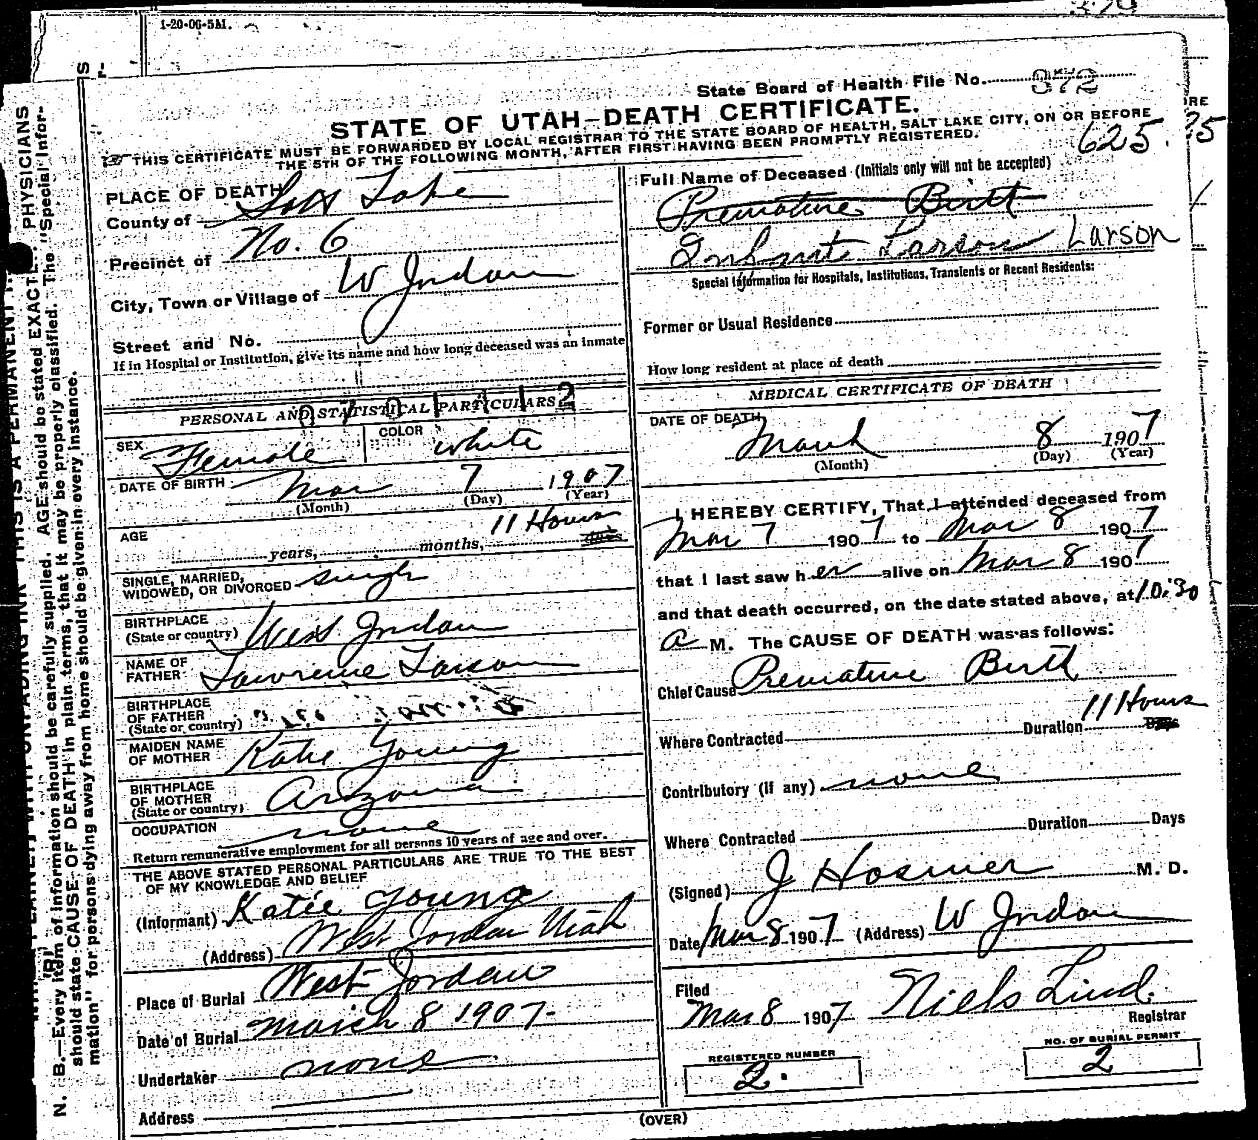 1-20-06-5M.
State Board of Health File No. 372
STATE OF UTAH—DEATH CERTIFICATE.
625.
THIS CERTIFICATE MUST BE FORWARDED BY LOCAL REGISTRAR TO THE STATE BOARD OF HEALTH, SALT LAKE CITY, ON OR BEFORE
THE 5TH OF THE FOLLOWING MONTH, AFTER FIRST HAVING BEEN PROMPTLY REGISTERED.
PLACE OF DEATH
County of Salt Lake
Precinct of No. 6
City, Town or Village of W Jordan
Street and No.
If in Hospital or Institution, give its name and how long deceased was an inmate
PERSONAL AND STATISTICAL PARTICULARS
SEX Female COLOR White
DATE OF BIRTH Mar 7 1907
(Month) (Day) (Year)
AGE years, months, 11 Hours
SINGLE, MARRIED, WIDOWED, OR DIVORCED single
BIRTHPLACE (State or country) West Jordan
NAME OF FATHER Lawrence Larson
BIRTHPLACE OF FATHER (State or country)
MAIDEN NAME OF MOTHER Katie Young
BIRTHPLACE OF MOTHER (State or country) Arizona
OCCUPATION none
Return remunerative employment for all persons 10 years of age and over.
THE ABOVE STATED PERSONAL PARTICULARS ARE TRUE TO THE BEST
OF MY KNOWLEDGE AND BELIEF
(Informant) Katie Young
(Address) West Jordan Utah
Place of Burial West Jordan
Date of Burial March 8 1907
Undertaker none
Address
Full Name of Deceased (Initials only will not be accepted)
Premature Birth
Infant Larson Larson
Special Information for Hospitals, Institutions, Transients or Recent Residents:
Former or Usual Residence
How long resident at place of death
MEDICAL CERTIFICATE OF DEATH
DATE OF DEATH March 8 1907
(Month) (Day) (Year)
I HEREBY CERTIFY, That I attended deceased from
Mar 7 1907 to Mar 8 1907
that I last saw her alive on Mar 8 1907
and that death occurred, on the date stated above, at 10:30
a M. The CAUSE OF DEATH was as follows:
Chief Cause Premature Birth
Where Contracted Duration 11 Hours
Contributory (if any) none
Where Contracted Duration Days
(Signed) J Hosmer M. D.
Date Mar 8 1907 (Address) W Jordan
Filed
Mar 8 1907 Niels Lind.
Registrar
REGISTERED NUMBER
2.
NO. OF BURIAL PERMIT
2
(OVER)
N. B.—Every item of information should be carefully supplied. AGE should be stated EXACTLY. PHYSICIANS
should state CAUSE OF DEATH in plain terms, that it may be properly classified. The "Special Infor-
mation" for persons dying away from home should be given in every instance.